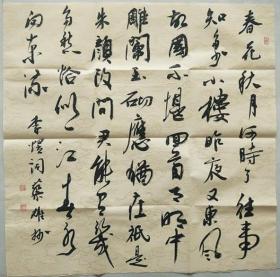 春花秋月何時了往事
知多少小樓昨夜又東風
故國不堪回首月明中
雕闌玉砌應猶在祇是
朱顏改問君能有幾
多愁恰似一江春水
向東流 李煜詞